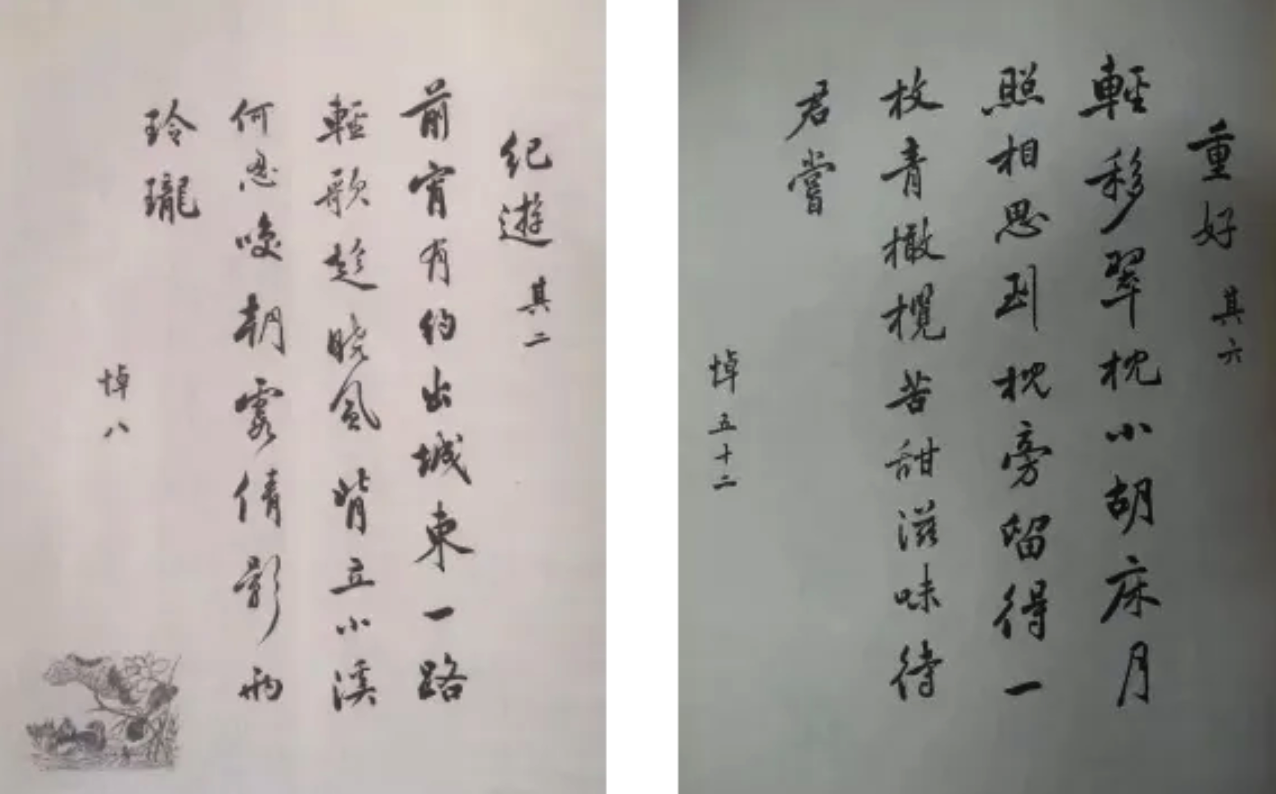 紀遊 其二
前宵有約出城東一路
輕歌趁晓風背立小溪
何忍唼朝露倩影两
玲瓏
悼八
重好 其六
輕移翠枕小胡床月
照相思到枕旁留得一
枚青橄欖苦甜滋味待
君嘗
悼五十二